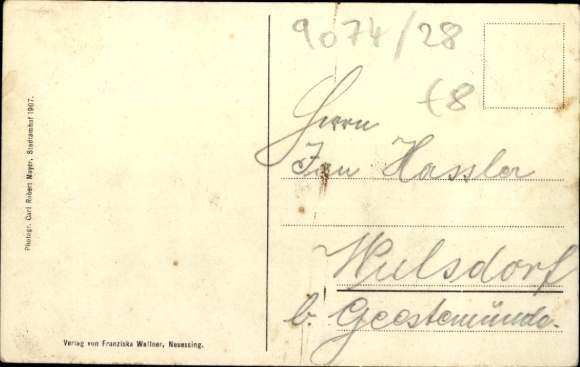 Photogr. Carl Robert Mayer, Stadtamhof 1907.
Verlag von Franziska Wallner, Neuessing.
9074/28
€8
Herrn
Jan Hassler
Wulsdorf
b. Geestemünde.